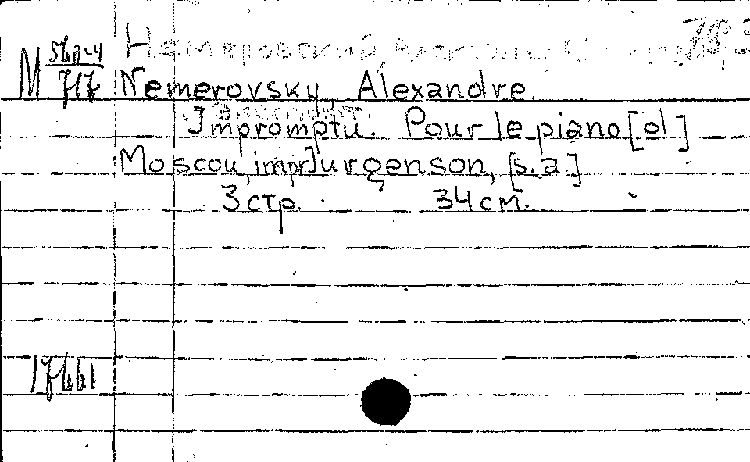 Немеровский, Александр
M 5Ып-4/717
Nemerovsky, Alexandre.
Impromptu. Pour le piano [d]
Moscou, impr Jurgenson, [s.a.]
3 стр. 34 см.
17661